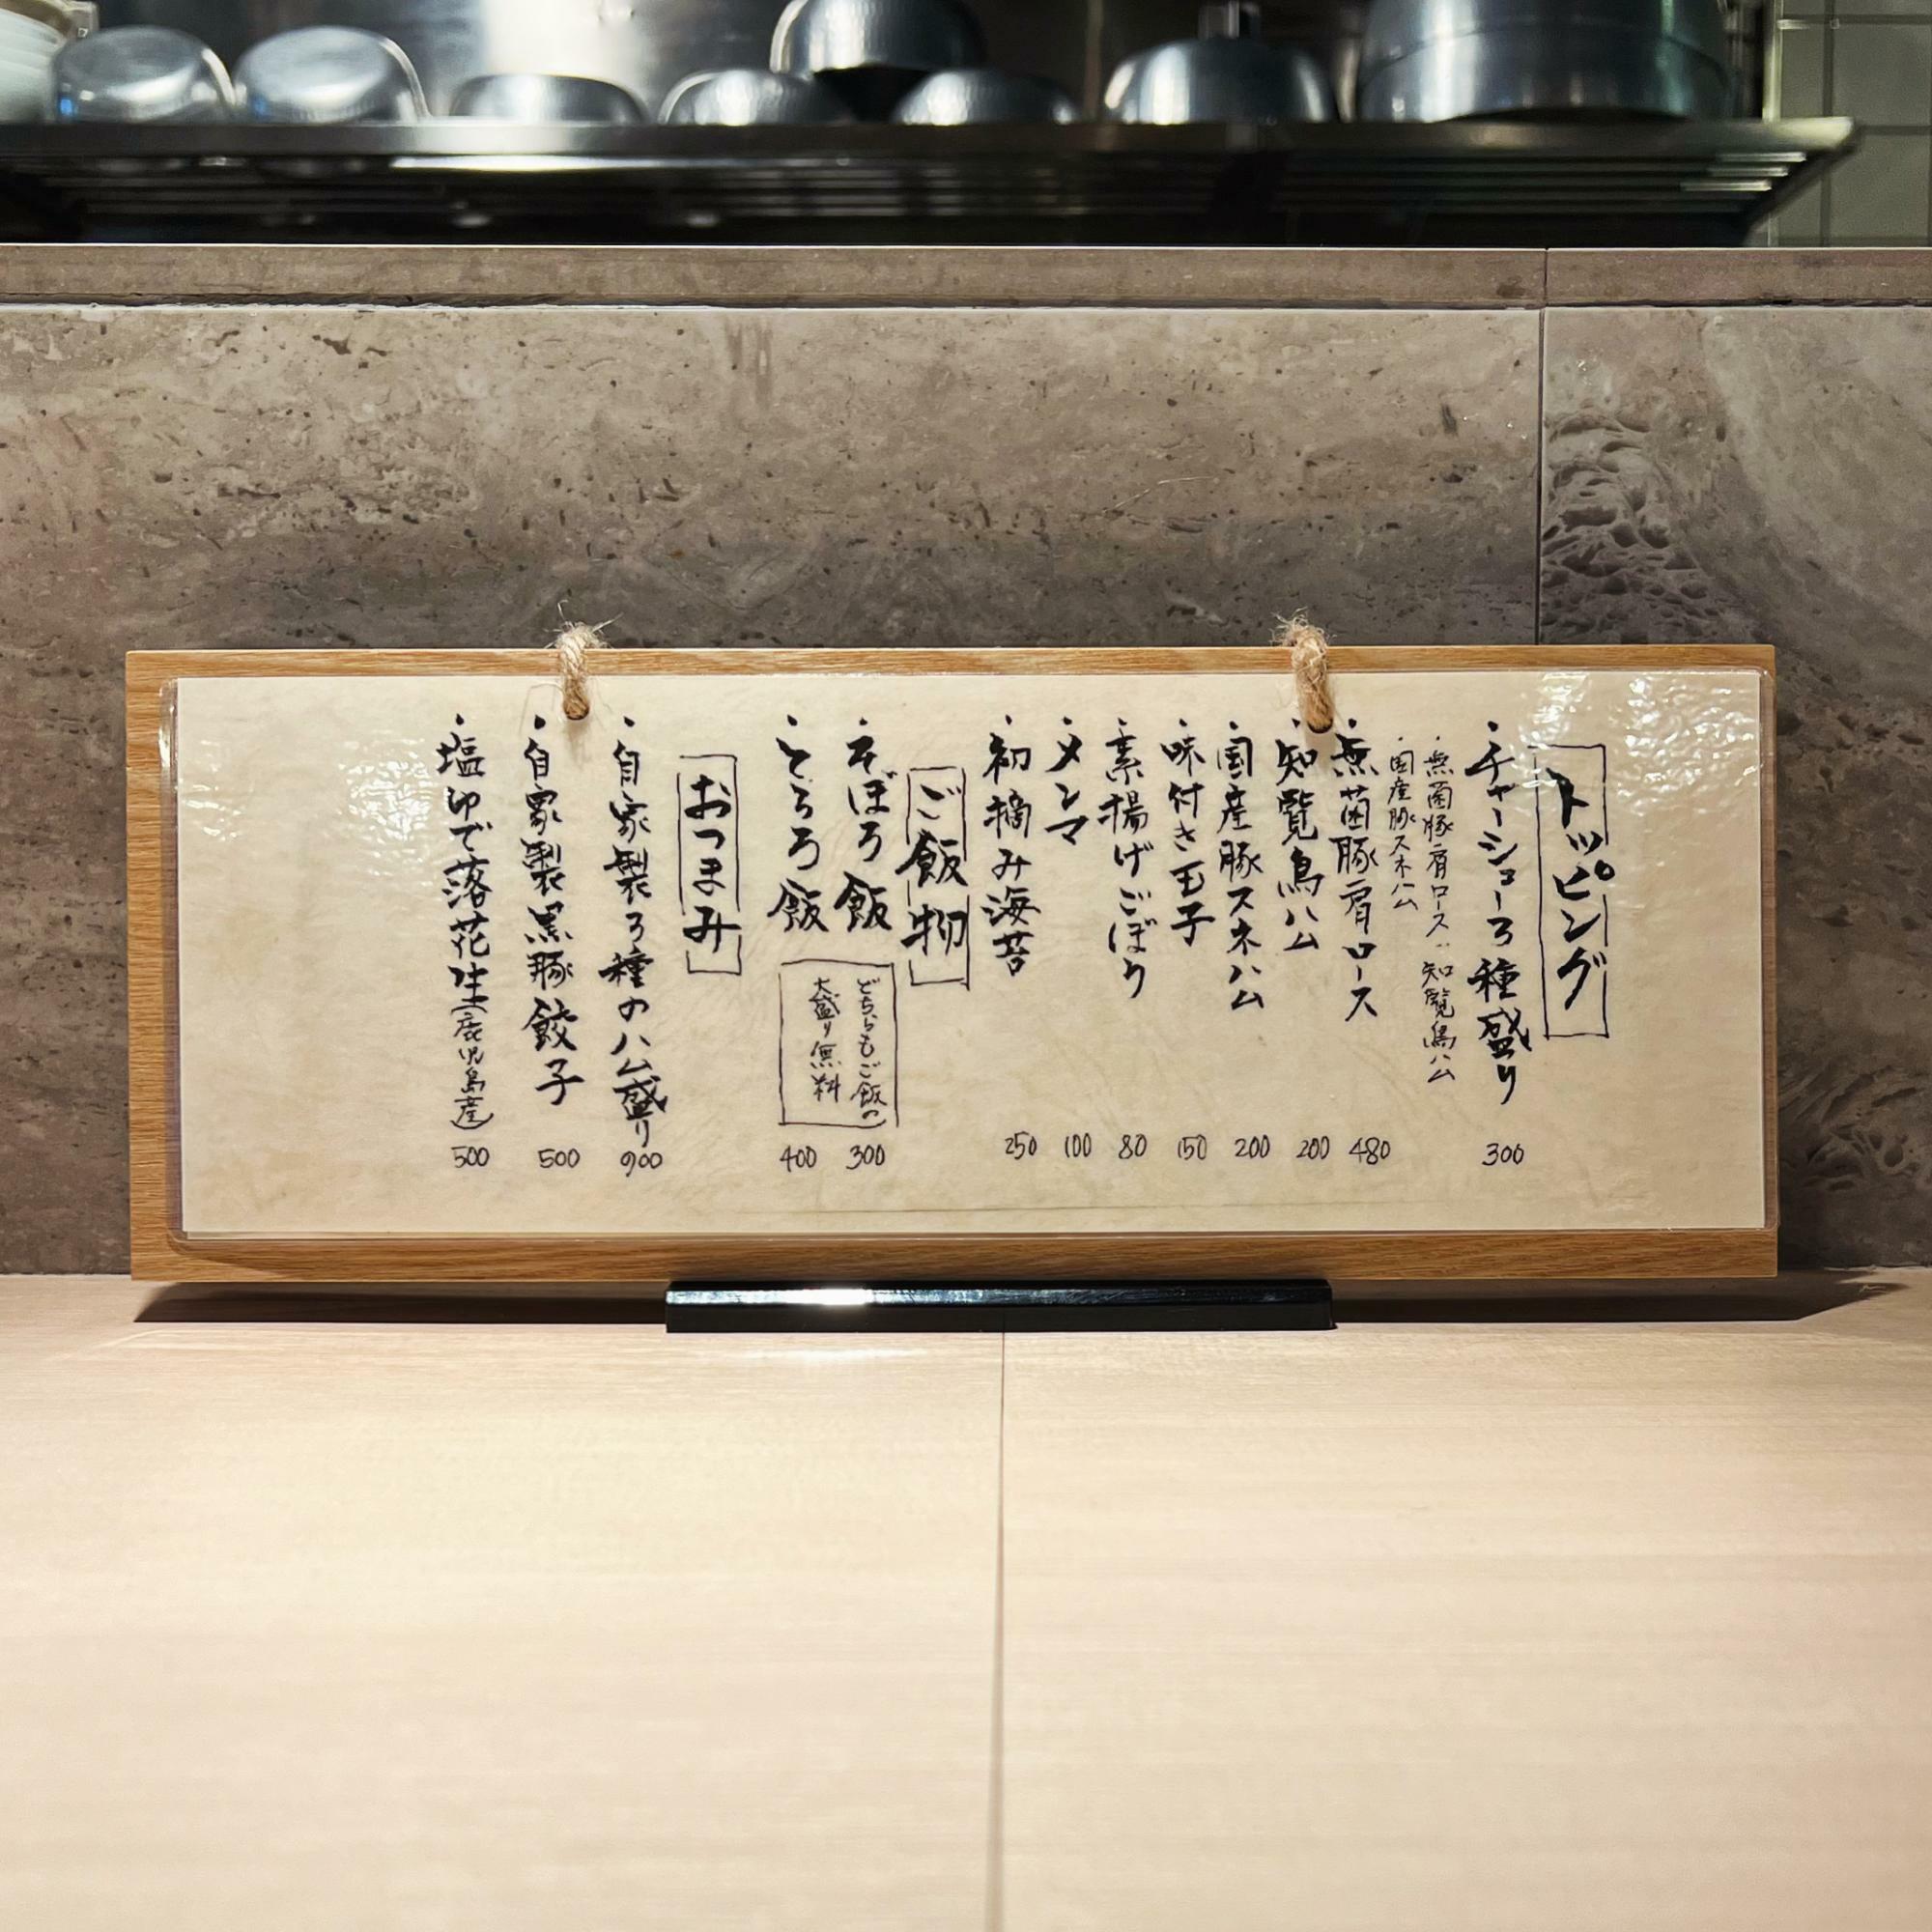 トッピング
・チャーシュー3種盛り 300
・無菌豚肩ロース ・知覧鳥ハム
・国産豚スネハム
・無菌豚肩ロース 480
・知覧鳥ハム 200
・国産豚スネハム 200
・味付き玉子 150
・素揚げごぼう 80
・メンマ 100
・初摘み海苔 250
ご飯物
・そぼろ飯 300
・とろろ飯 400
どちらもご飯の
大盛り無料
おつまみ
・自家製3種のハム盛り 900
・自家製黒豚餃子 500
・塩ゆで落花生(鹿児島産) 500